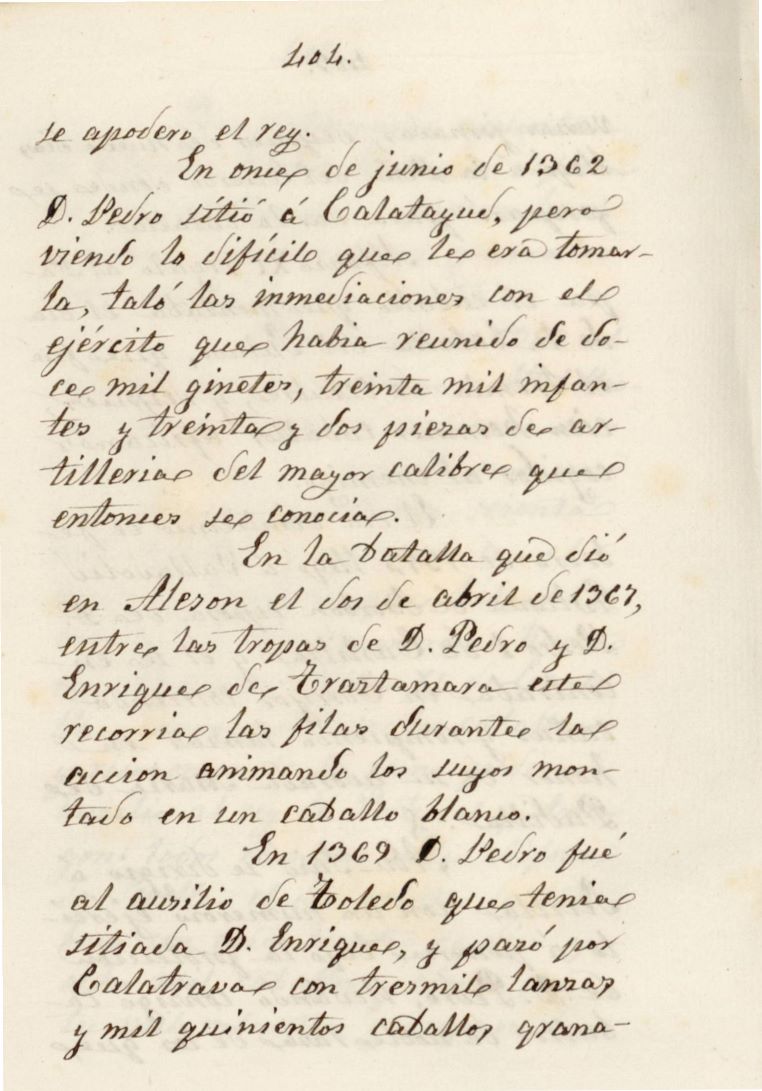 404.
se apodero el rey.
En once de junio de 1362
D. Pedro sitió á Calatayud, pero
viendo lo difícil que le era tomar-
la, taló las inmediaciones con el
ejército que habia reunido de do-
ce mil ginetes, treinta mil infan-
tes y treinta y dos piezas de ar-
tilleria del mayor calibre que
entonces se conocia.
En la batalla que dió
en Aleson el dos de abril de 1367,
entre las tropas de D. Pedro y D.
Enrique de Trastamara este
recorria las filas durante la
accion animando los suyos mon-
tado en un caballo blanco.
En 1369 D. Pedro fué
al ausilio de Toledo que tenia
sitiada D. Enrique, y pasó por
Calatrava con tresmil lanzas
y mil quinientos caballos grana-